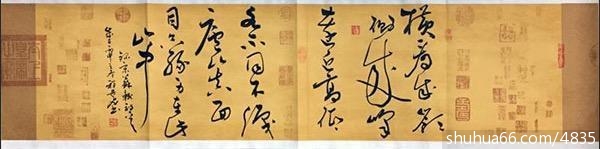 横看成嶺
側成峰
遠近高低
各不同不識
廬山真面
目只緣身在此
山中
shuhua66.com/4835